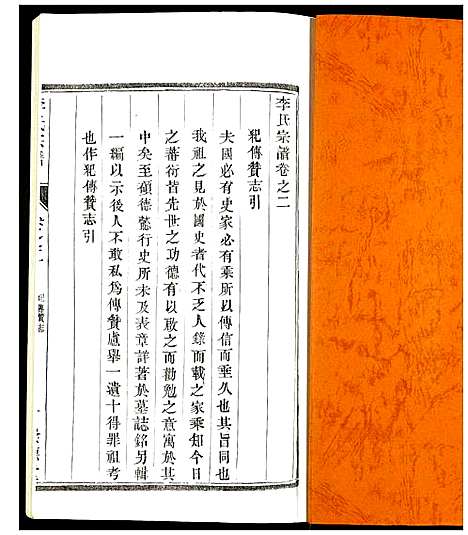 李氏宗譜卷之二
犯傳贊志引
夫國必有史家必有乘所以傳信而垂久也其旨同也
我祖之見於國史者代不乏人錄而載之家乘知今日
之蕃衍皆先世之功德有以啟之而勸勉之意寓於其
中矣至碩德懿行史所未及表章詳著於墓誌銘另輯
一編以示後人不敢私為傳贊慮舉一遺十得罪祖考
也作犯傳贊志引